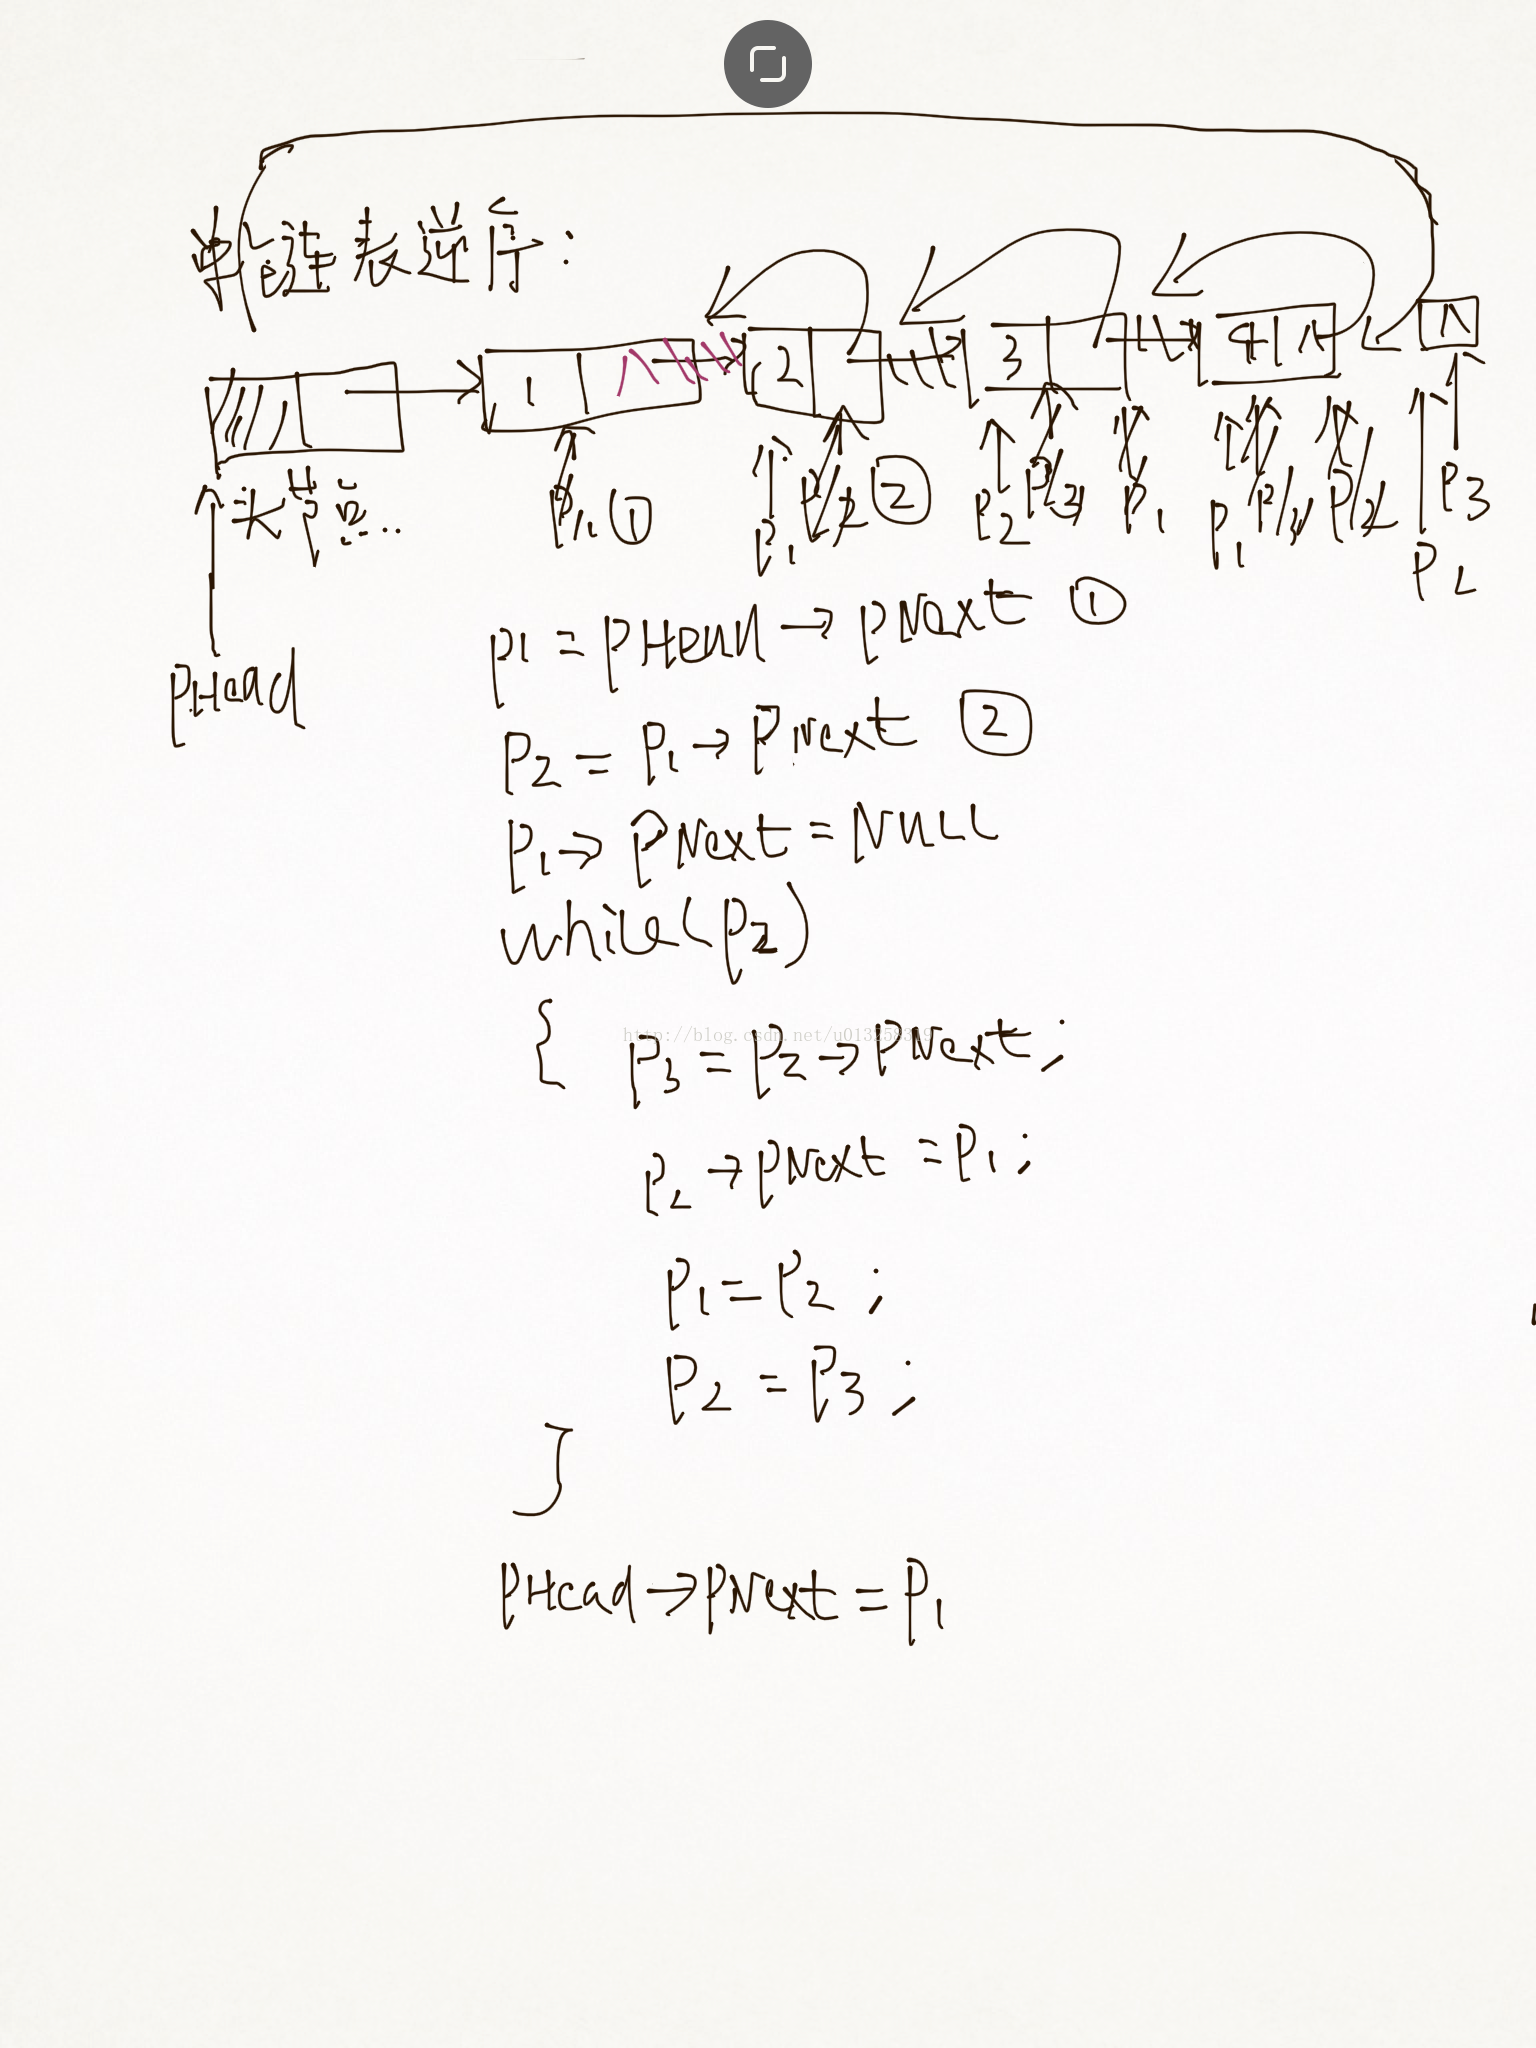 单链表逆序:
1 2 3 4 ∧ ∧
头节点...
P1 ① P1 P2 ② P2 P3 P1 P1 P3 P2 P3
P2
pHead
p1 = pHead → pNext ①
P2 = P1 → PNext ②
P1 → PNext = NULL
while(P2)
{ P3 = P2 → PNext ;
http://blog.csdn.net/u013258319
P2 → PNext = P1 ;
P1 = P2 ;
P2 = P3 ;
}
pHead → PNext = P1